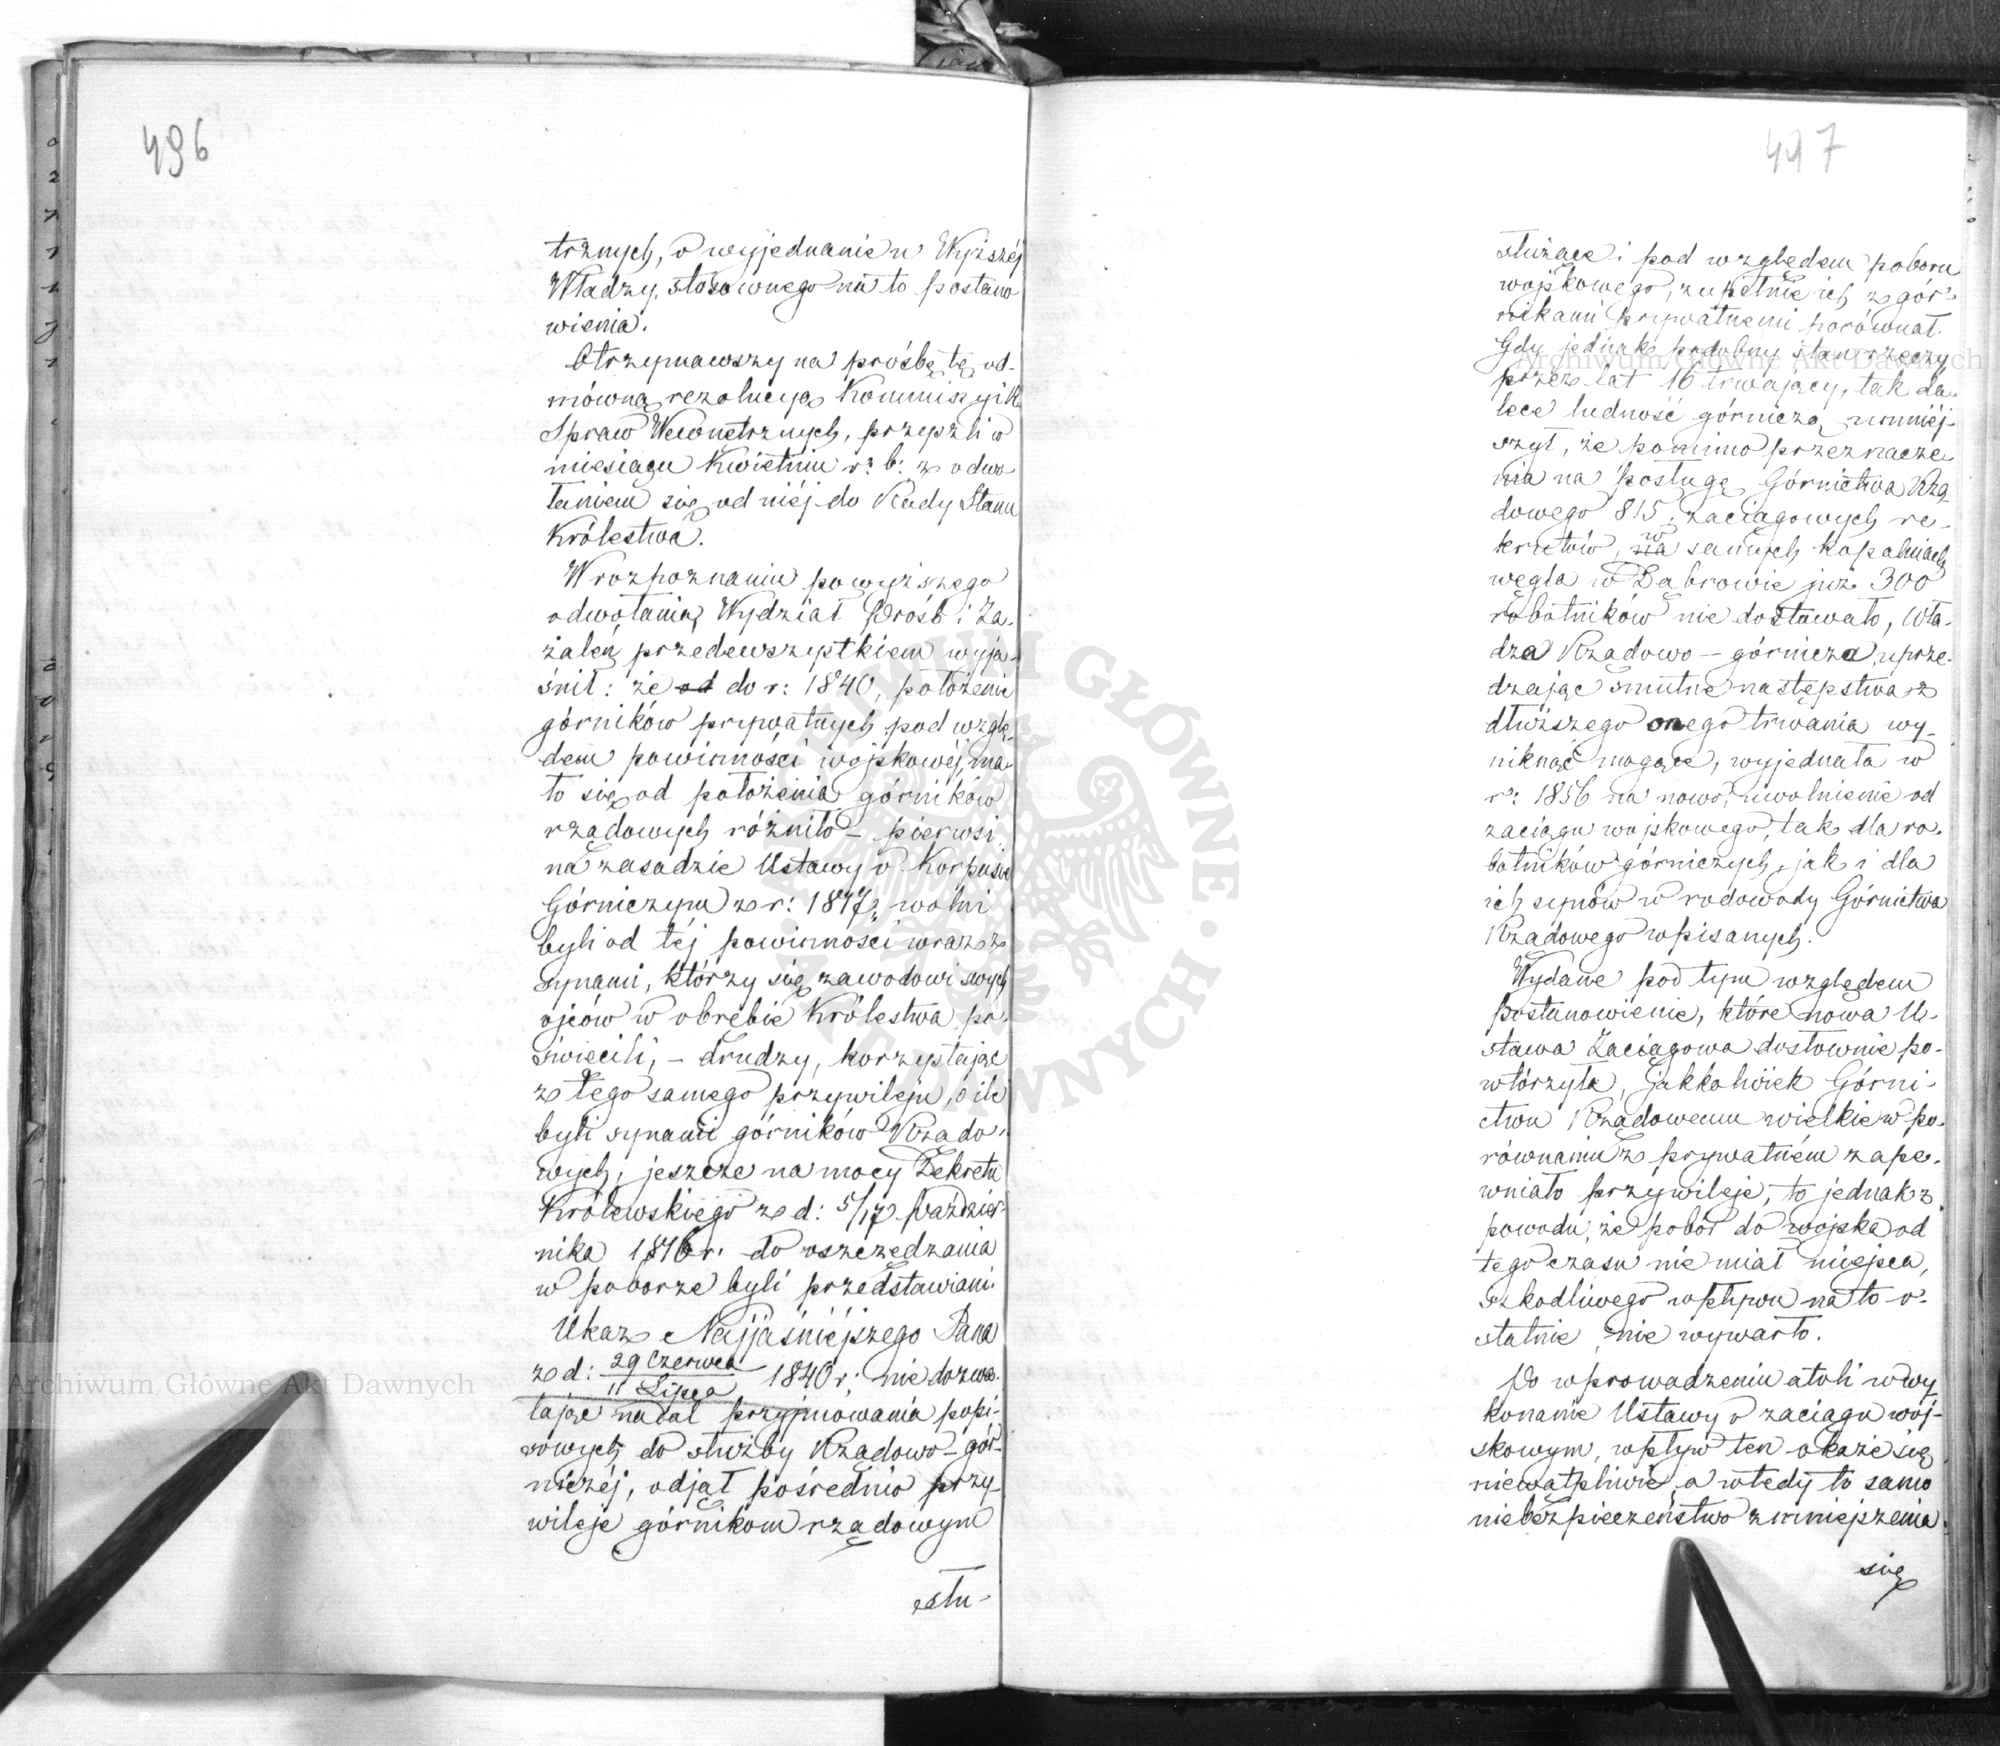 496
trznych, o wyjednanie u Wyższéj
Władzy, stosownego na to postano
wienia.
Otrzymawszy na prośbę tę od-
mówną rezolucyą Kommissyi R.
Spraw Wewnętrznych, przyszli w
miesiącu Kwietniu r: b: z odwo
łaniem się od niéj do Rady Stanu
Królestwa.
W rozpoznaniu powyższego
odwołania, Wydział Próśb i Za-
żaleń przedewszystkiem wyja-
śnił: że od do r: 1840, położenie
górników prywatnych pod wzglę-
dem powinności wojskowéj, ma-
ło się od położenia górników
rządowych różniło – pierwsi
na zasadzie Ustawy o Korpusie
Górniczym z r: 1817, wolni
byli od téj powinności wraz z
synami, którzy się zawodowi swych
ojców w obrębie Królestwa po-
święcili, – drudzy, korzystając
z tego samego przywileju, o ile
byli synami górników Rządo-
wych, jeszcze na mocy Dekretu
Królewskiego z d: 5/17 Paździer-
nika 1816 r. do oszczędzania
w poborze byli przedstawiani.
Ukaz Najjaśniéjszego Pana
z d: 29 Czerwca / 11 Lipca 1840 r; nie dozwa-
lając nadal przyjmowania popi-
sowych do służby Rządowo-gór-
niczéj, odjął pośrednio przy-
wileje górnikom rządowym
słu-
497
służące i pod względem poboru
wojskowego, zupełnie ich z gór-
nikami prywatnemi porówna​ł.
Gdy jednak podobny stan rzeczy
przez lat 16 trwający, tak da-
lece ludność górniczą zmniéj-
szył, że pomimo przeznacze
nia na posługę Górnictwa Rzą
dowego 815, zaciągowych re-
krutów, na w samych kopalniach
węgla w Dąbrowie już 300
robotników nie dostawało, Wła-
dza Rządowo – górnicza, uprze-
dzając smutne następstwa z
dłuższego onego trwania wy-
niknąć mogące, wyjednała w
r: 1856 na nowo, uwolnienie od
zaciągu wojskowego, tak dla ro-
botników górniczych, jak i dla
ich synów w rodowody Górnictwa
Rządowego wpisanych.
Wydane pod tym względem
Postanowienie, które nowa U-
stawa Zaciągowa dosłownie po-
wtórzyła, jakkolwiek Górni-
ctwu Rządowemu wielkie w po-
równaniu z prywatném zape-
wniało przywileje, to jednak z
powodu, że pobór do wojska od
tego czasu nie miał miejsca,
szkodliwego wpływu na to o-
statnie, nie wywarło.
Po wprowadzeniu atoli w wy
konanie Ustawy o zaciągu woj-
skowym, wpływ ten okaże się
niewątpliwie, a wtedy to samo
niebezpieczeństwo zmniejszenia
się
Archiwum Główne Akt Dawnych
Archiwum Główne Akt Dawnych
ARCHIWUM GŁÓWNE AKT DAWNYCH